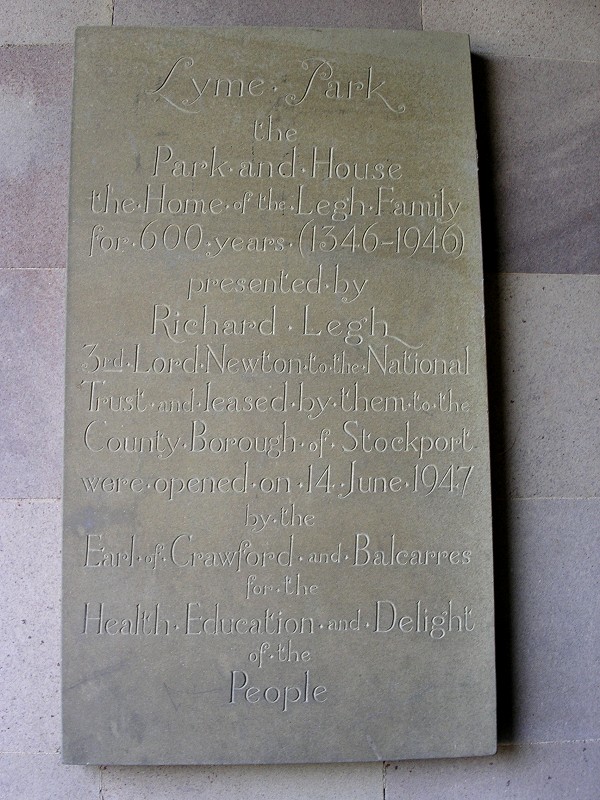 Lyme · Park
the
Park · and · House
the · Home · of · the · Legh · Family
for · 600 · years · (1346–1946)
presented · by
Richard · Legh
3rd · Lord · Newton · to · the · National
Trust · and · leased · by · them · to · the
County · Borough · of · Stockport
were · opened · on · 14 · June · 1947
by · the
Earl · of · Crawford · and · Balcarres
for · the
Health · Education · and · Delight
of · the
People